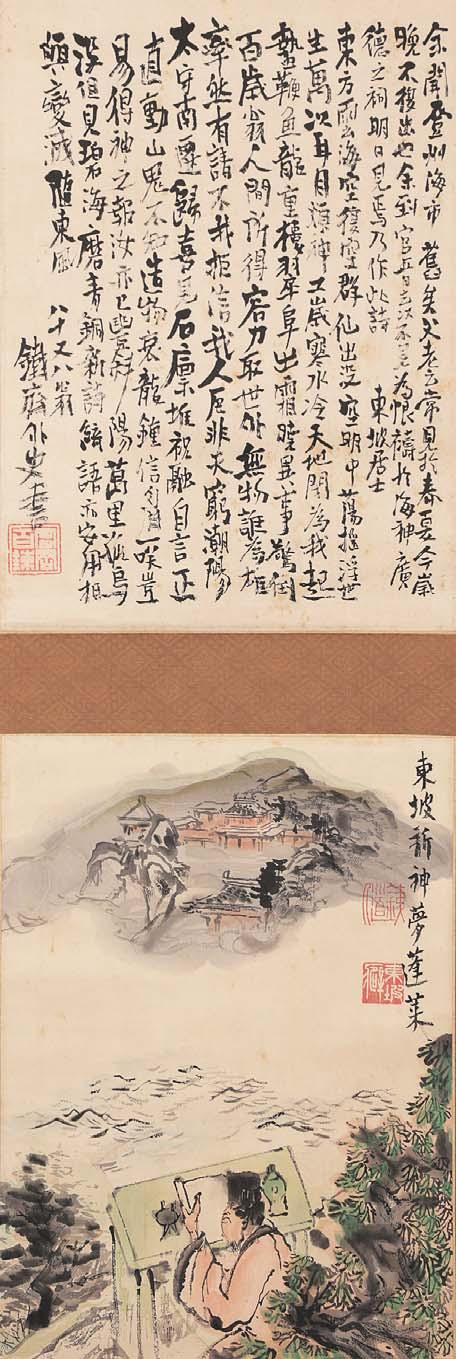 余聞登州海市舊矣父老云常見於春夏今歲
晚不復出也余到官五日去以不見為恨禱於海神廣
德之祠明日見焉乃作此詩 東坡居士
東方雲海空復空群仙出没空明中蕩摇浮世
生萬以耳目煩神工歲寒水冷天地閉為我起
蟄鞭魚龍重樓翠阜出霜曉異事驚倒
百歲翁人間所得容力取世外無物誰為雄
率然有請不我拒信我人厄非天窮潮陽
太守南遷歸喜見石廩堆祝融自言正
直動山鬼不知造物哀龍鍾信眉一咲豈
易得神之報汝亦已豐斜陽萬里孤鳥
没但見碧海磨青銅新詩綺語亦安用相
與變滅隨東風
八十又八翁
鐵齋外史書
東坡祈神夢蓬莱
東坡癖